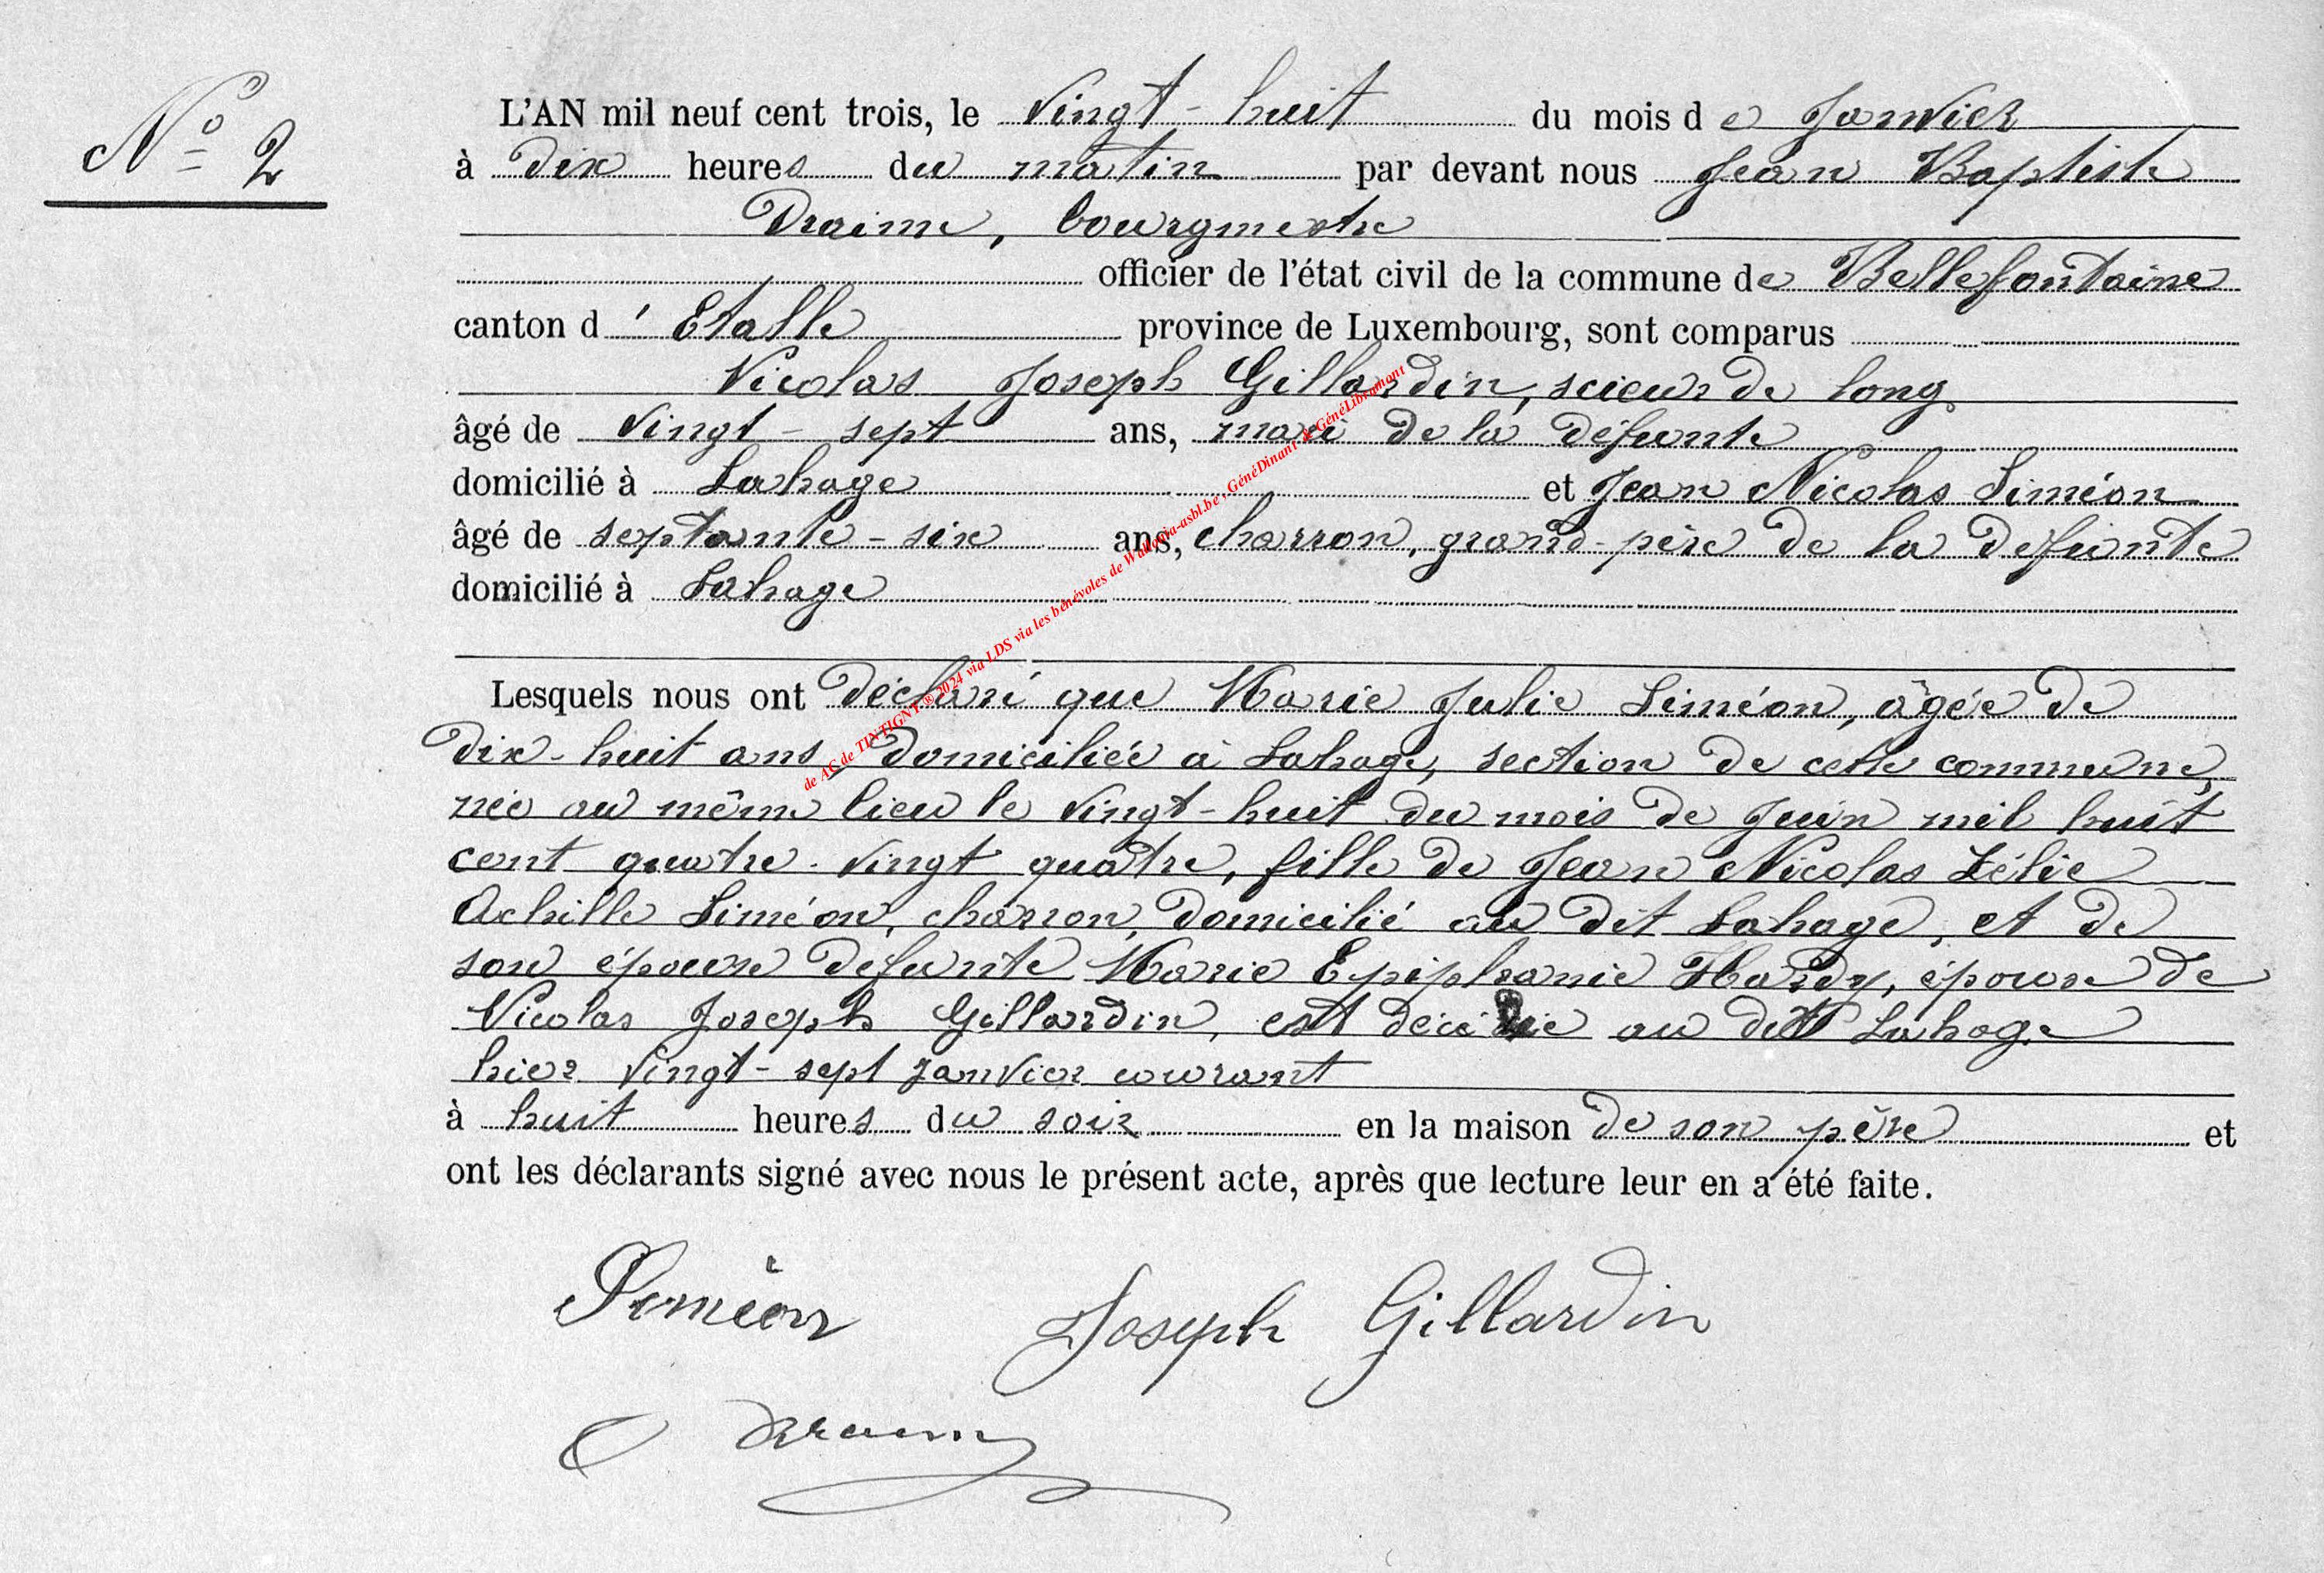 N° 2
L'AN mil neuf cent trois, le vingt-huit du mois de Janvier
à dix heures du matin par devant nous Jean Baptiste
Draime, bourgmestre
officier de l'état civil de la commune de Bellefontaine
canton d'Etalle province de Luxembourg, sont comparus
Nicolas Joseph Gillardin, scieur de long
âgé de vingt-sept ans, mari de la défunte
domicilié à Lahage et Jean Nicolas Siméon
âgé de septante-six ans, charron, grand-père de la defunte
domicilié à Lahage
Lesquels nous ont déclaré que Marie Julie Siméon, âgée de
dix-huit ans, domiciliée à Lahage, section de cette commune,
née au même lieu le vingt-huit du mois de Juin mil huit
cent quatre-vingt quatre, fille de Jean Nicolas Zélie
Achille Siméon, charron, domicilié au dit Lahage, et de
son épouse defunte Marie Epiphanie Hardy, épouse de
Nicolas Joseph Gillardin, est décédée au dit Lahage
hier vingt-sept janvier courant
à huit heures du soir en la maison de son père et
ont les déclarants signé avec nous le présent acte, après que lecture leur en a été faite.
Siméon Joseph Gillardin
Draime
de AC de TINTIGNY ® 2024 via LDS via les bénévoles de Wallonia-asbl.be, GénéDinant & GénéLibramont